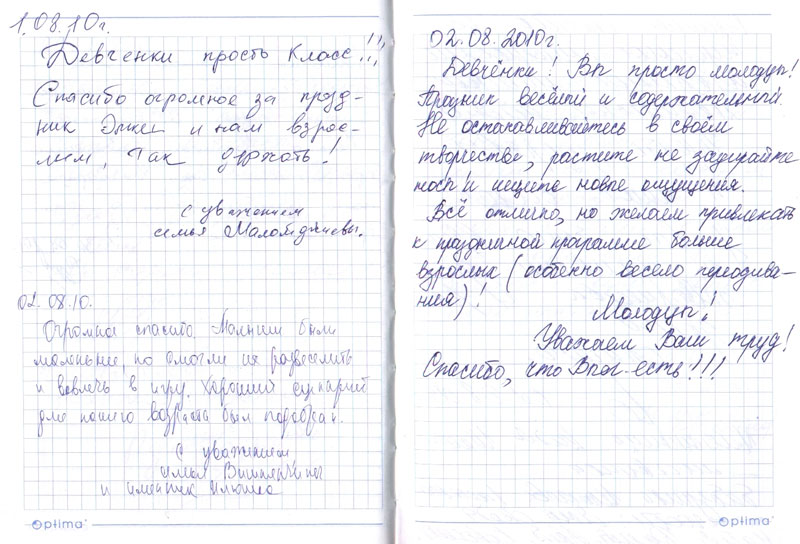 1.08.10г.
Девченки просто Класс!!!
Спасибо огромное за празд-
ник Эмке и нам взрос-
лым, Так держать!
С уважением
семья
02.08.10.
Огромное спасибо. Малыши были
маленькие, но смогли их развеселить
и вовлечь в игру. Хороший сценарий
для нашего возраста был подобран.
С уважением
семья
и именинник Ильюша
Optima
02.08.2010г.
Девчёнки! Вы просто молодцы!
Празник весёлый и содержательный.
Не останавливайтесь в своём
творчестве, растите не задирайте
носы и ищите новые ощущения.
Всё отлично, но желаем привлекать
к праздничной программе больше
взрослых (особенно весело переодева-
ния)!
Молодцы!
Уважаем Ваш труд!
Спасибо, что Вы есть!!!
Optima